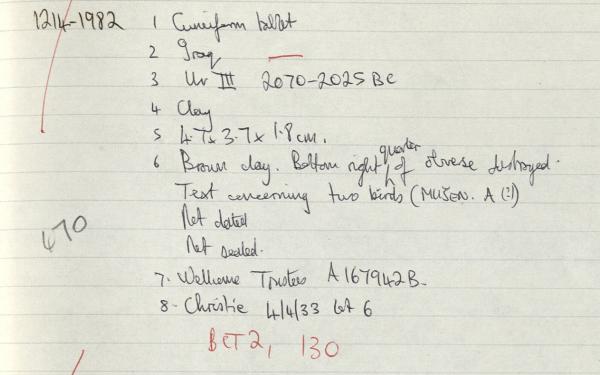 1214-1982 1 Cuneiform tablet
2 Iraq
3 Ur III 2070-2025 BC
4 Clay
5 4.7 x 3.7 x 1.8 cm.
6 Brown clay. Bottom right quarter of obverse destroyed.
Text concerning two birds (MUŠEN. A (?))
Not dated
Not sealed.
470
7. Wellcome Trustees A167942B.
8. Christie 4/4/33 lot 6
BCT2, 130